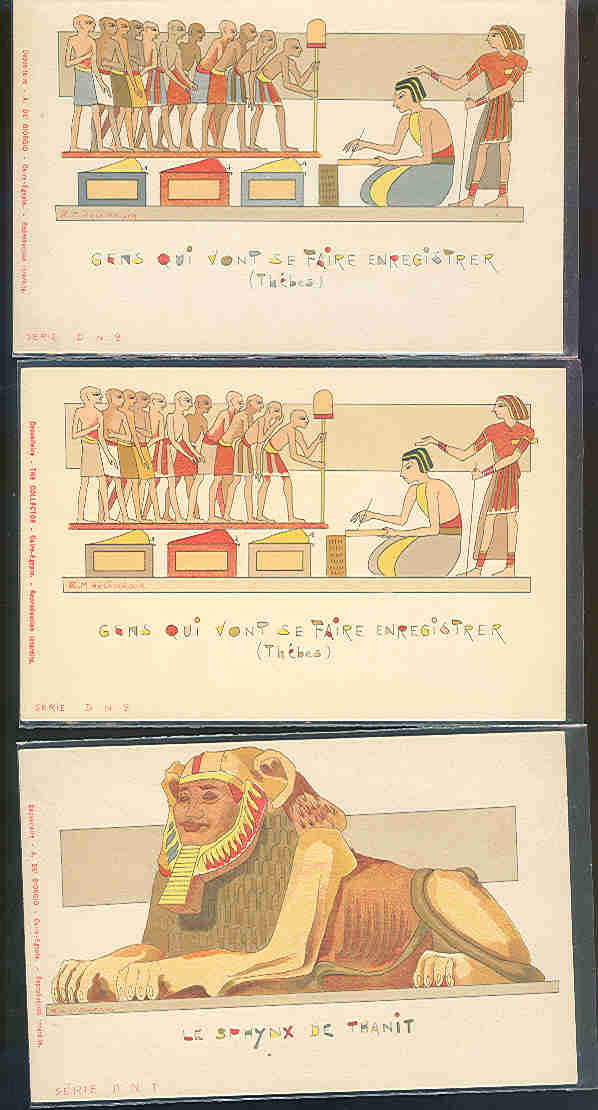 Dépositaire - A. DE GIORGIO - Caire-Egypte. - Reproduction interdite.
GENS QUI VONT SE FAIRE ENREGISTRER
(Thèbes)
SÉRIE D N. 2
Dépositaire - THE COLLECTOR - Caire-Egypte. - Reproduction interdite.
GENS QUI VONT SE FAIRE ENREGISTRER
(Thèbes)
SÉRIE D N. 2
Dépositaire - A. DE GIORGIO - Caire-Egypte. - Reproduction interdite.
LE SPHYNX DE THANIT
SÉRIE D N. 1